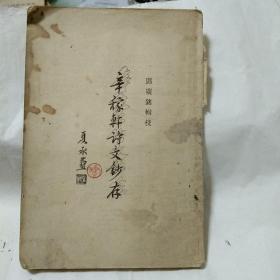 鄧廣銘輯校
辛稼軒詩文鈔存
夏承燾